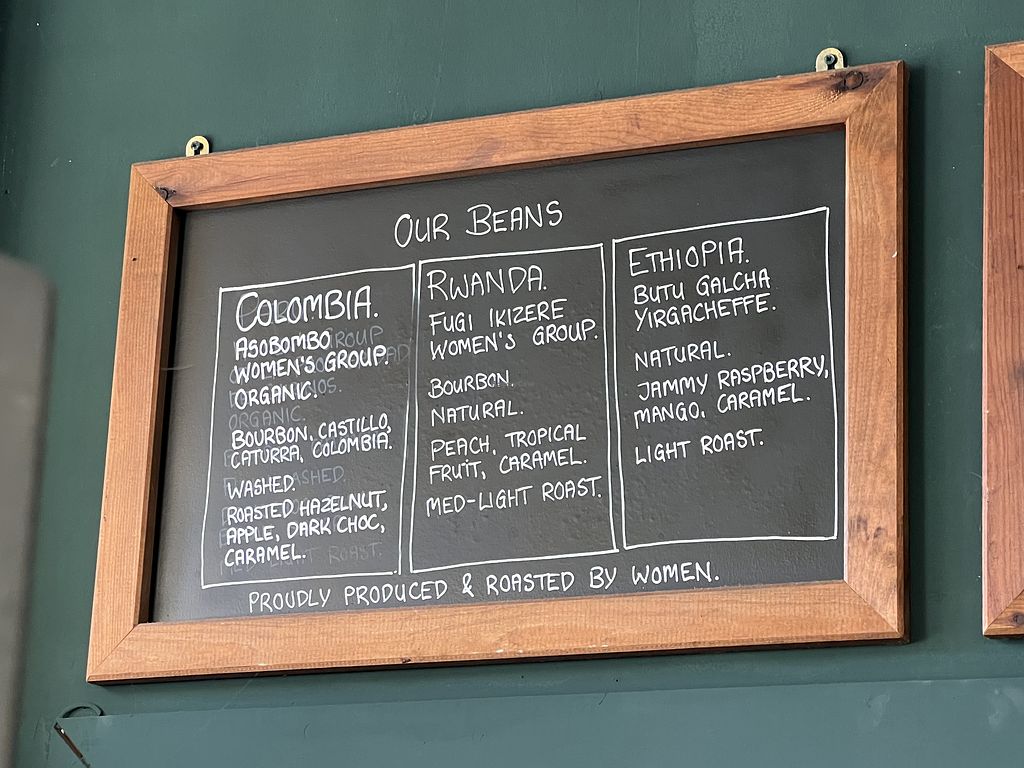 OUR BEANS
COLOMBIA.
ASOBOMBO
WOMEN'S GROUP.
ORGANIC.
BOURBON, CASTILLO,
CATURRA, COLOMBIA.
WASHED.
ROASTED HAZELNUT,
APPLE, DARK CHOC,
CARAMEL.
RWANDA.
FUGI IKIZERE
WOMEN'S GROUP.
BOURBON.
NATURAL.
PEACH, TROPICAL
FRUIT, CARAMEL.
MED-LIGHT ROAST.
ETHIOPIA.
BUTU GALCHA
YIRGACHEFFE.
NATURAL.
JAMMY RASPBERRY,
MANGO, CARAMEL.
LIGHT ROAST.
PROUDLY PRODUCED & ROASTED BY WOMEN.